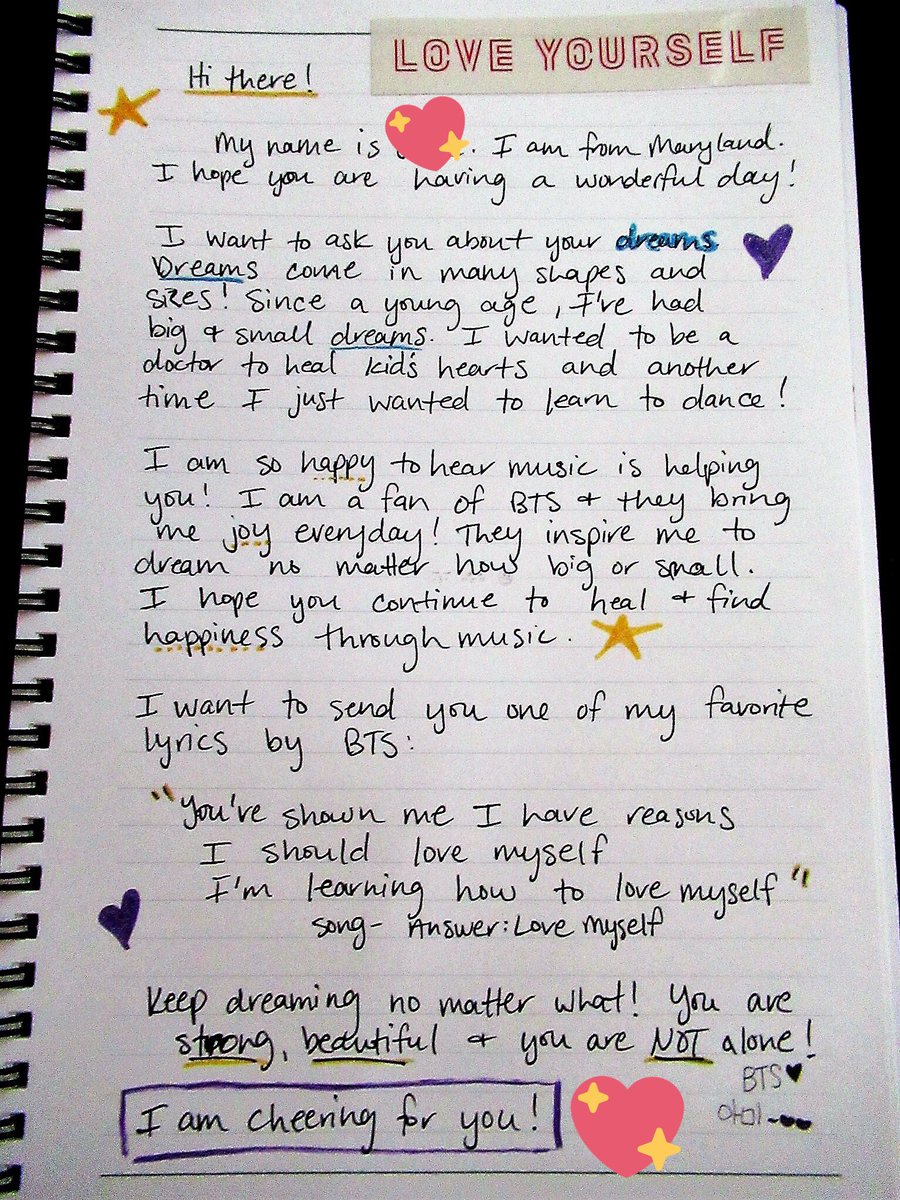 LOVE YOURSELF
Hi there!
My name is . I am from Maryland.
I hope you are having a wonderful day!
I want to ask you about your dreams.
Dreams come in many shapes and
sizes! Since a young age, I've had
big & small dreams. I wanted to be a
doctor to heal kid's hearts and another
time I just wanted to learn to dance!
I am so happy to hear music is helping
you! I am a fan of BTS & they bring
me joy everyday! They inspire me to
dream no matter how big or small.
I hope you continue to heal & find
happiness through music.
I want to send you one of my favorite
lyrics by BTS:
"You've shown me I have reasons
I should love myself
I'm learning how to love myself"
song- Answer: Love Myself
Keep dreaming no matter what! You are
strong, beautiful & you are NOT alone!
BTS♥
아미~
I am cheering for you!